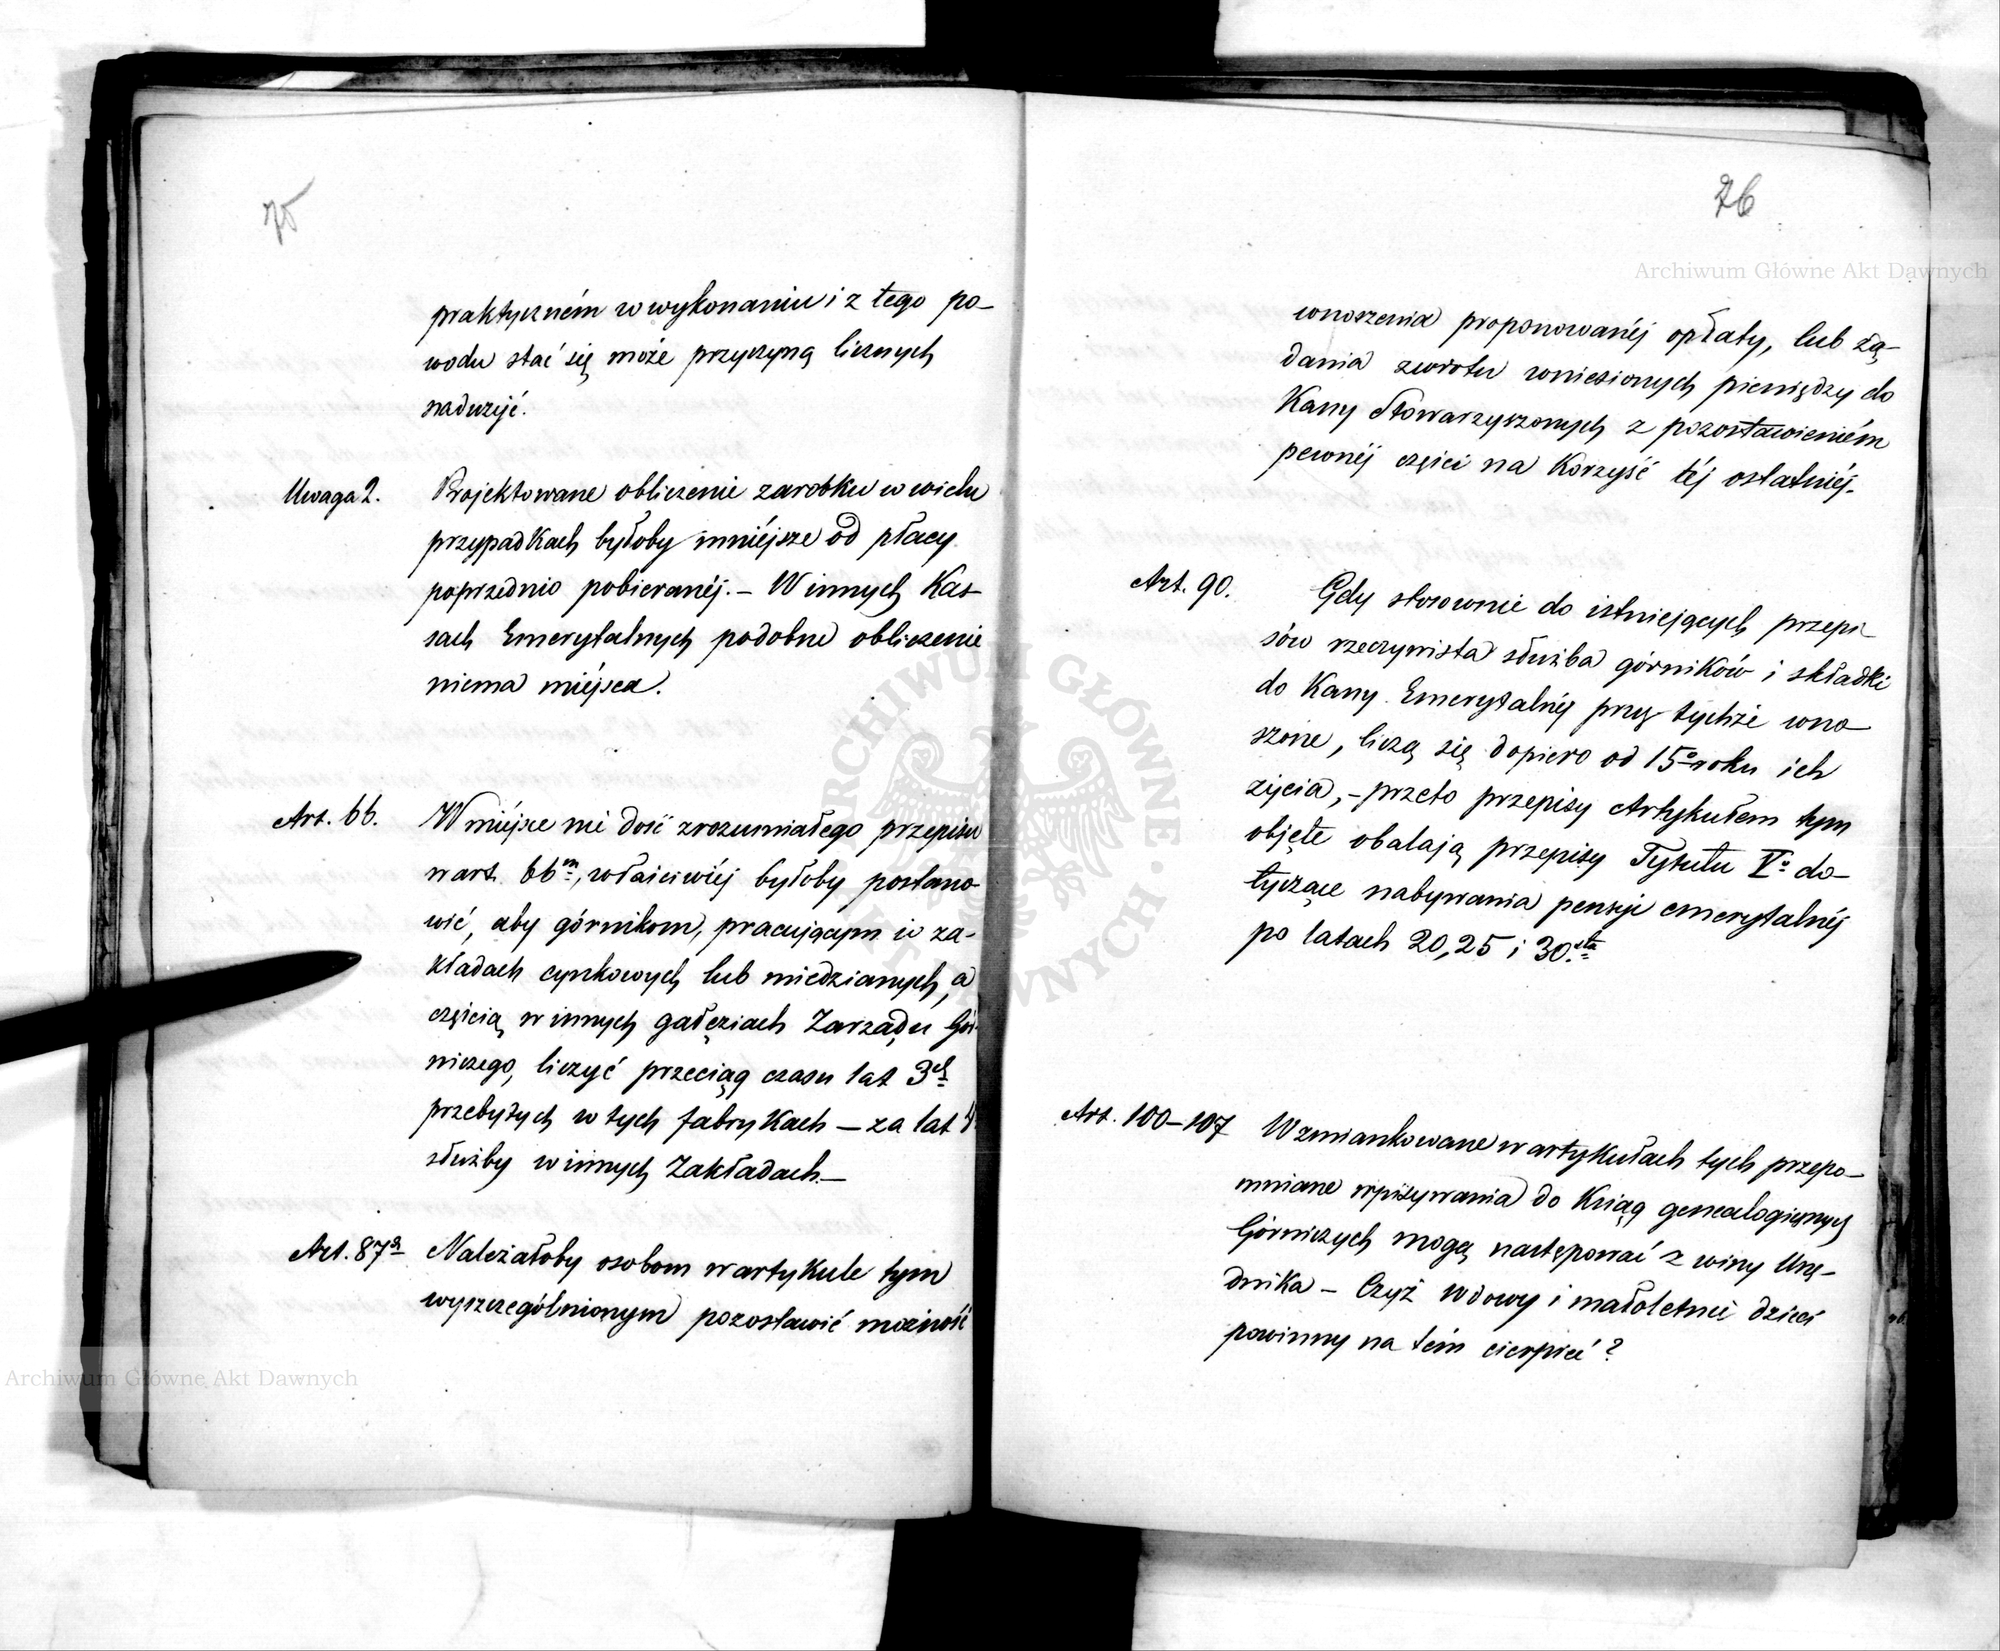 75
praktyczném w wykonaniu i z tego po-
wodu stać się może przyczyną licznych
nadużyć.
Uwaga 2. Projektowane obliczenie zarobku w wielu
przypadkach byłoby mniéjsze od płacy
poprzednio pobieranéj. – W innych Kas-
sach Emerytalnych podobne obliczenie
niema miéjsca.
Art. 66. W miéjsce nie dość zrozumiałego przepisu
w art. 66m, właściwiéj byłoby postano-
wić, aby górnikom, pracującym w za-
kładach cynkowych lub miedzianych, a
częścią w innych gałęziach Zarządu Gór-
niczego, liczyć przeciąg czasu lat 3ch
przebytych w tych fabrykach – za lat 4
służby w innych Zakładach. –
Art. 87 Należałoby osobom w artykule tym
wyszczególnionym pozostawić możność
76
wnoszenia proponowanéj opłaty, lub żą-
dania zwrotu wniesionych pieniędzy do
Kassy Stowarzyszonych z pozostawieniém
pewnéj części na Korzyść téj ostatniéj.
Art. 90. Gdy stosownie do istniejących przepi-
sów rzeczywista służba górników i składki
do Kassy Emerytalnéj przez tychże wno-
szone, liczą się dopiero od 15o roku ich
życia, – przeto przepisy Artykułem tym
objęte obalają przepisy Tytułu Vo do-
tyczące nabywania pensyi emerytalnéj
po latach 20, 25 i 30.stu
Art. 100–107 Wzmiankowane w artykułach tych przepo-
mniane wpisywania do Ksiąg genealogicznych
Górniczych mogą następować z winy Urzę-
dnika – Czyż wdowy i małoletnie dzieci
powinny na tém cierpieć?
Archiwum Główne Akt Dawnych
Archiwum Główne Akt Dawnych
ARCHIWUM GŁÓWNE AKT DAWNYCH